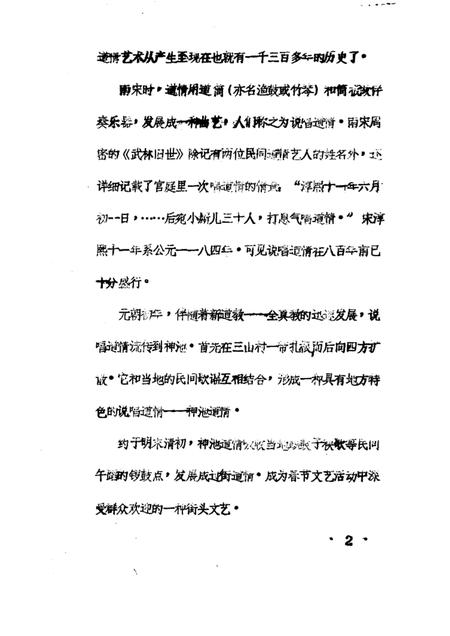 道情艺术从产生至现在也就有一千三百多年的历史了。
南宋时,道情用道筒(亦名渔鼓或竹琴)和简板伴
奏乐器,发展成一种曲艺,人们称之为说唱道情。南宋周
密的《武林旧世》除记有两位民间道情艺人的姓名外,还
详细记载了宫庭里一次唱道情的情况:“淳熙十一年六月
初一日,……后苑小厮儿三十人,打息气唱道情。”宋淳
熙十一年系公元一一八四年。可见说唱道情在八百年前已
十分盛行。
元朝初年,伴随着新道教——全真教的迅速发展,说
唱道情流传到神池。首先在三山村一带扎根而后向四方扩
散。它和当地的民间歌谣互相结合,形成一种具有地方特
色的说唱道情——神池道情。
约于明末清初,神池道情吸收当地秧歌等民间
午蹈的锣鼓点,发展成过街道情。成为春节文艺活动中深
受群众欢迎的一种街头文艺。
·2·